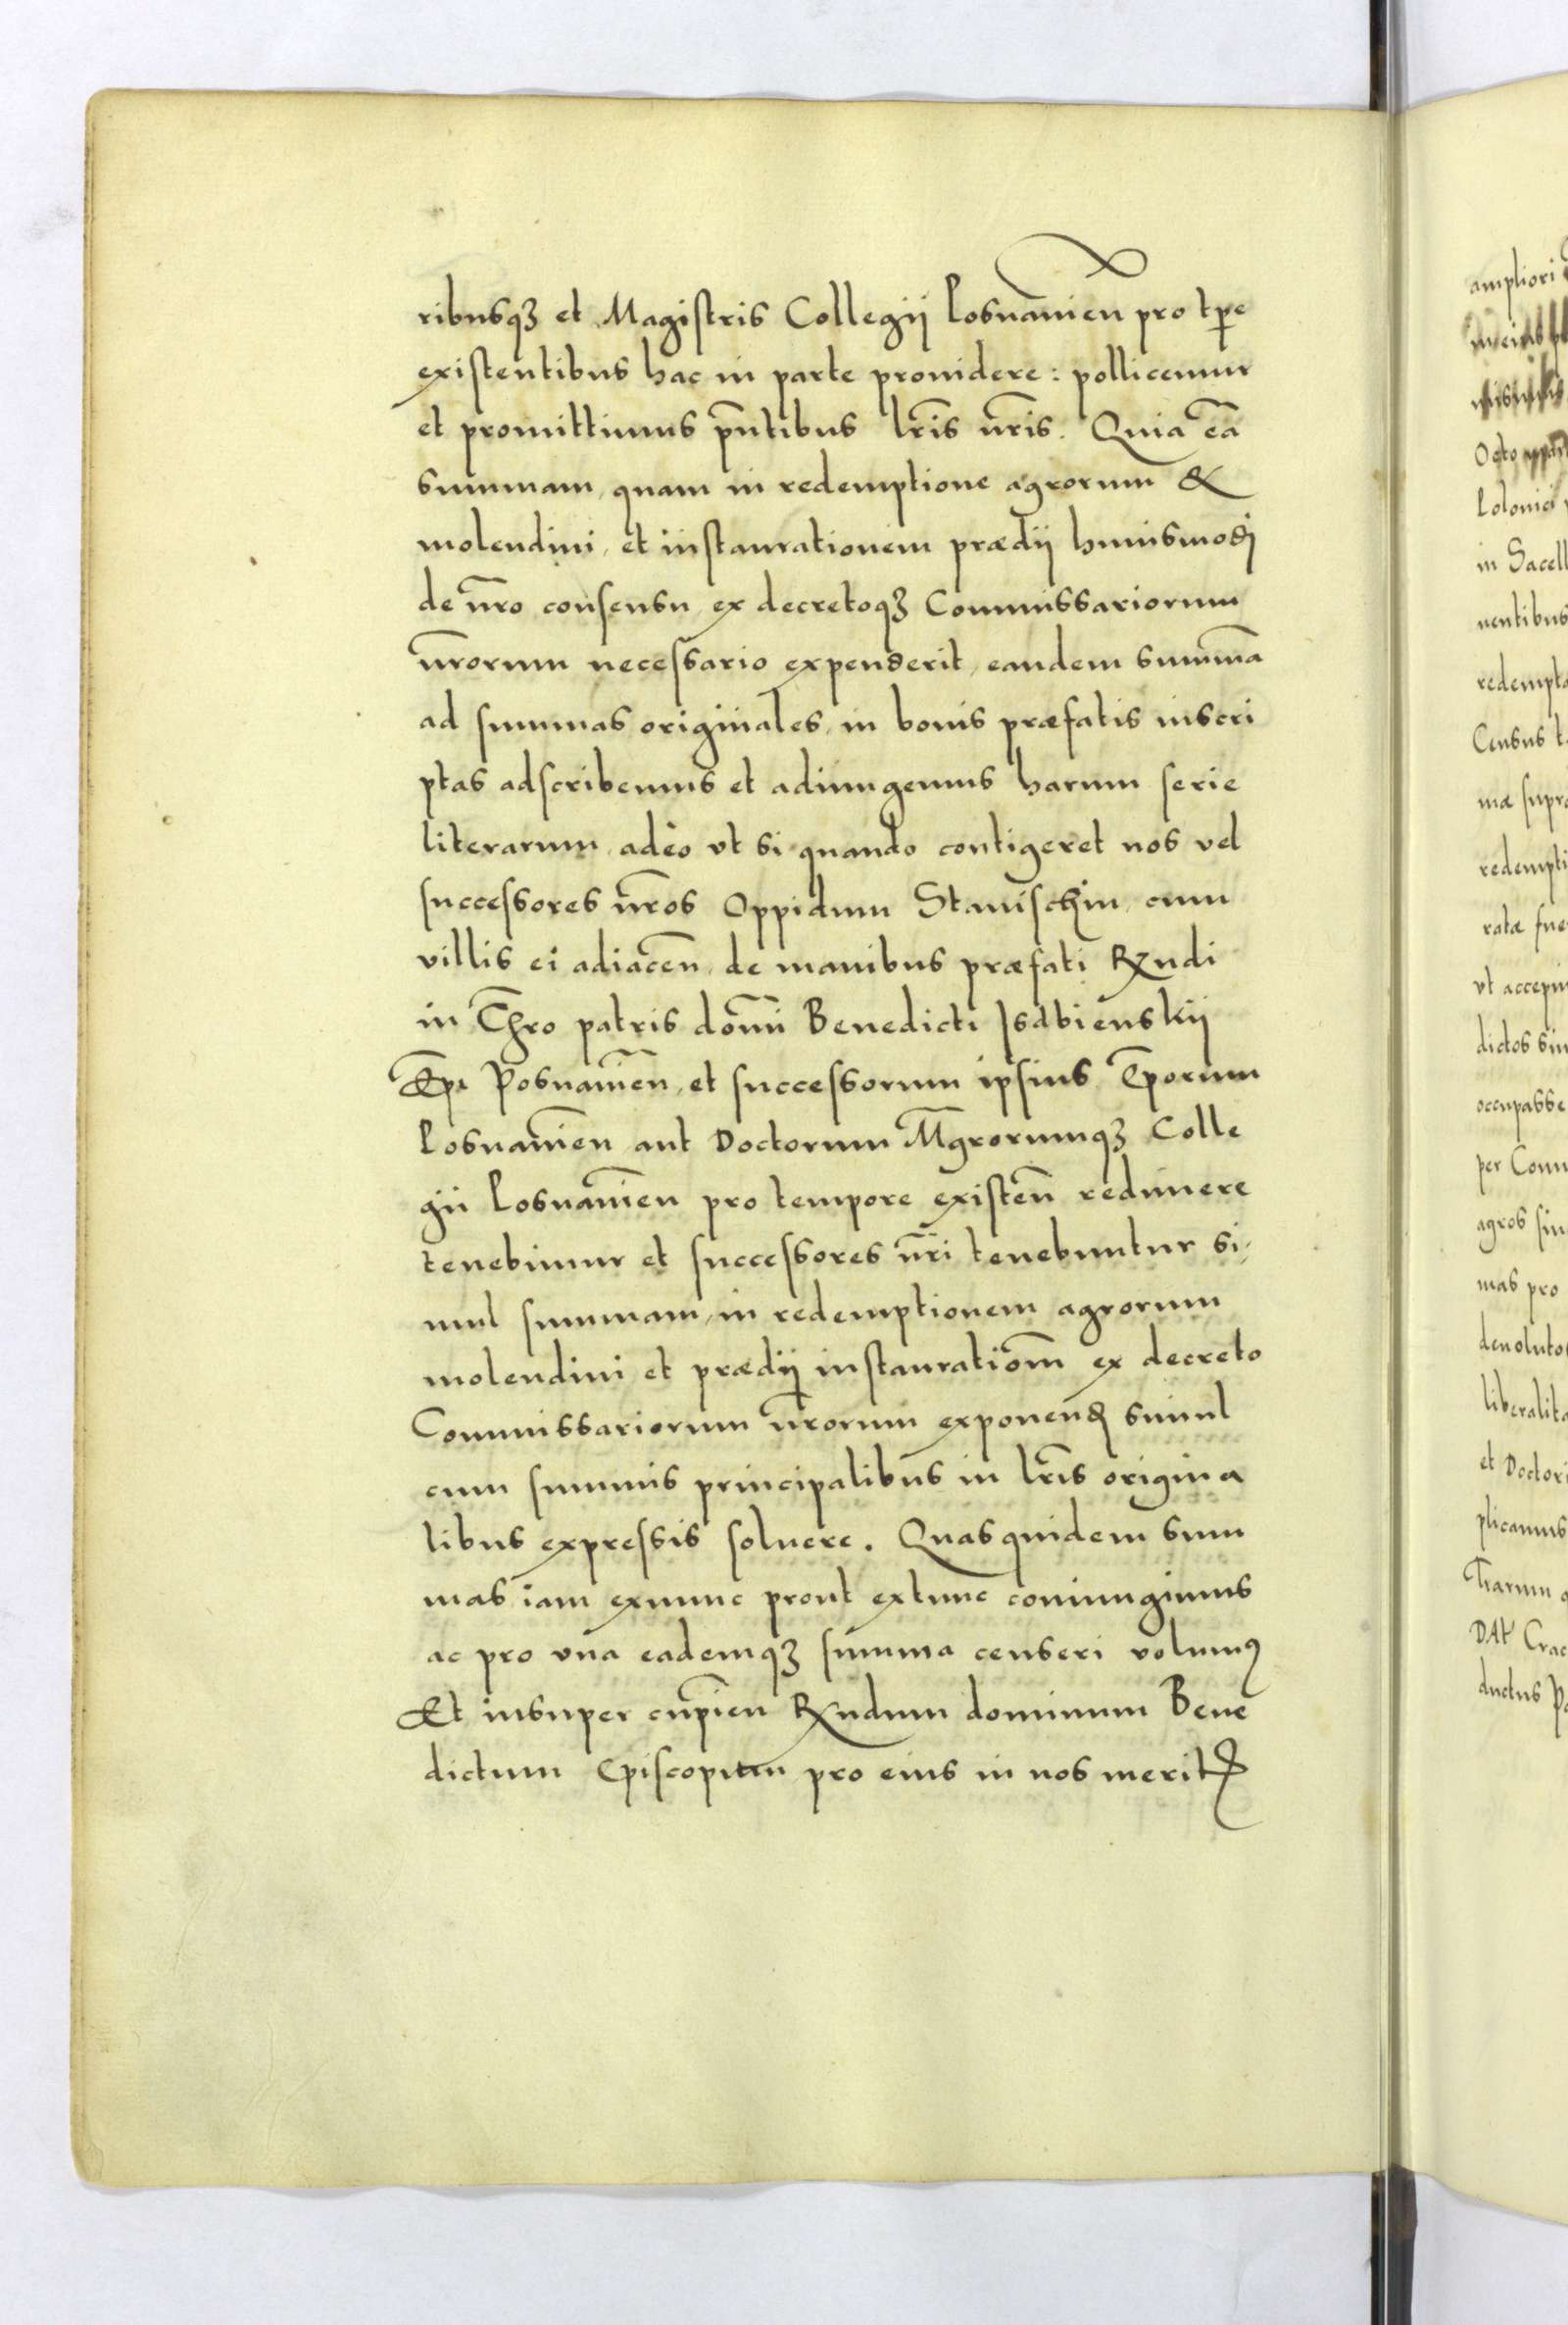 ribusqꝫ et Magistris Collegij Posnanien̄ pro tp̄e
existentibus hac in parte prouidere: pollicemur
et promittimus pn̄tibus lr̄is nr̄is. Quia eā
summam, quam in redemptione agrorum &
molendini, et instaurationem prædij huiusmodi
de nr̄o consensu ex decretoqꝫ Commissariorum
nr̄orum necessario expenderit, eandem summā
ad summas originales, in bonis præfatis inscri
ptas adscribemus et adiungemus harum serie
literarum, adeò vt si quando contigeret nos vel
successores nr̄os Oppidum Stauischin, cum
villis ei adiacen̄, de manibus præfati Rn̄di
in Chr̄o patris domi͞ni Benedicti Isdbienskij
Ep̄i Posnanien̄, et successorum ipsius Ep̄orum
Posnanien̄ aut Doctorum Mḡrorumqꝫ Colle
gii Posnanien̄ pro tempore existen̄ redimere
tenebimur et successores nr̄i tenebuntur si,
mul summam, in redemptionem agrorum
molendini et prædij instauratiōm ex decreto
Commissariorum nr̄orum exponend simul
cum summis principalibus in lr̄is origina
libus expressis soluere. Quas quidem sum
mas iam exnunc prout extunc coniungimus
ac pro vna eademqꝫ summa censeri volumꝰ
Et insuper cupien̄ Rn̄dum dominum Bene
dictum Episcopum pro eius in nos meritꝭ
ampliori
Octo
Polonici
in Sacell
nentibus
redempta
Census t
mæ supra
redempti
ratæ fue
vt accepim
dictos sin
occupasse
per Comm
agros sin
mas pro
deuoluto
liberalita
et Doctori
plicamus
Harum q
DAT Crac
ductus Pa